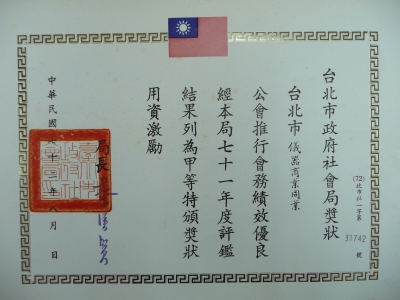 台北市政府社會局獎狀
(72)北市社一字第
31742
號
台北市儀器商業同業
公會推行會務績效優良
經本局七十一年度評鑑
結果列為甲等特頒獎狀
用資激勵
局長
中華民國 十二年 月 日